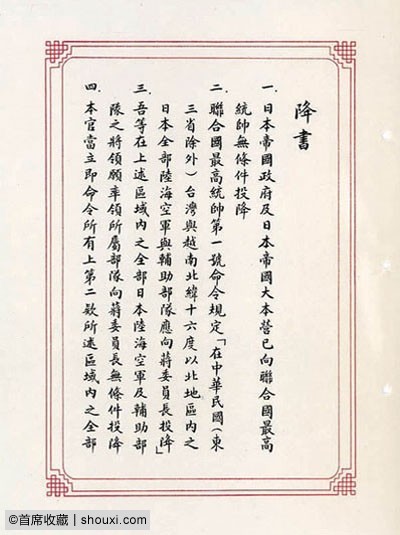 降書
一．日本帝國政府及日本帝國大本營已向聯合國最高
統帥無條件投降
二．聯合國最高統帥第一號命令規定「在中華民國（東
三省除外）台灣與越南北緯十六度以北地區內之
日本全部陸海空軍與輔助部隊應向蔣委員長投降」
三．吾等在上述區域內之全部日本陸海空軍及輔助部
隊之將領願率領所屬部隊向蔣委員長無條件投降
四．本官當立即命令所有上第二款所述區域內之全部
@首席收藏 | shouxi.com